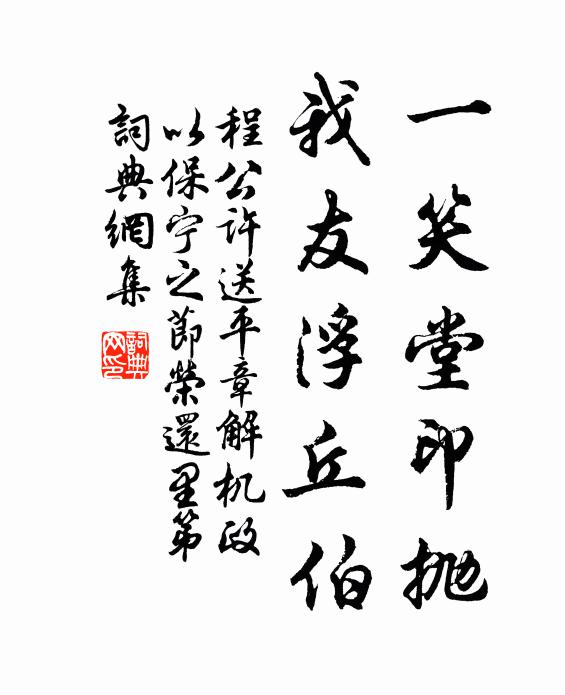 一笑堂印抛
我友浮丘伯
程公许送平章解机政
以保宁之節榮還里第
詞典網集
詞典網印